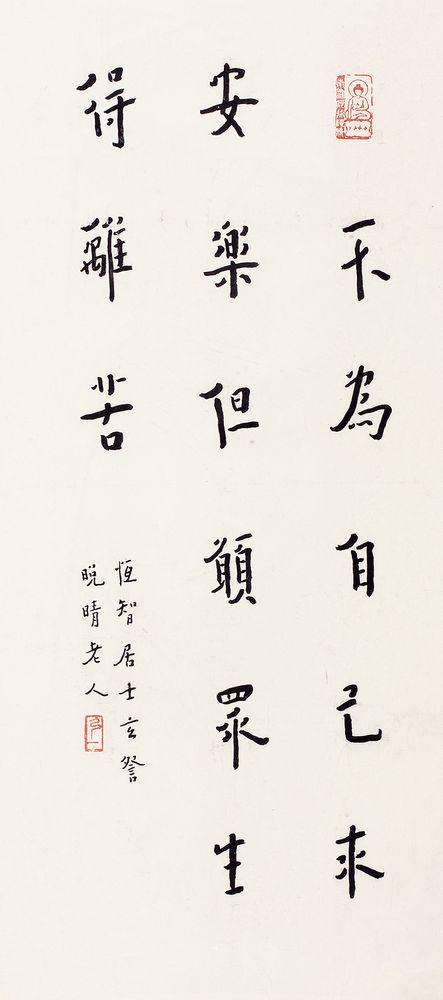 不為自己求
安楽但願眾生
得離苦
恒智居士玄詧
晚晴老人